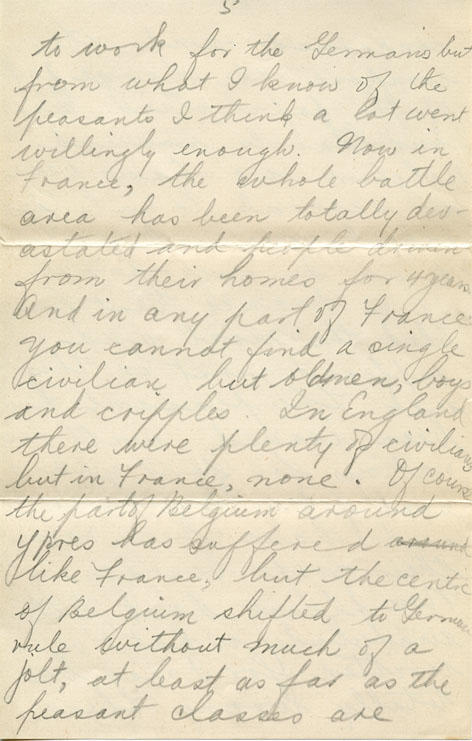 5
to work for the Germans but
from what I know of the
peasants I think a lot went
willingly enough. Now in
France, the whole battle
area has been totally dev-
astated and people driven
from their homes for 4 years
and in any part of France
you cannot find a single
civilian but oldmen, boys
and cripples. In England
there were plenty of civilians
but in France, none. Of course
the part of Belgium around
Ypres has suffered around
like France, but the centre
of Belgium shifted to German
rule without much of a
jolt, at least as far as the
peasant classes are